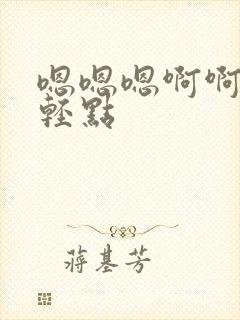 嗯嗯嗯啊啊
輕點
蔣基芳